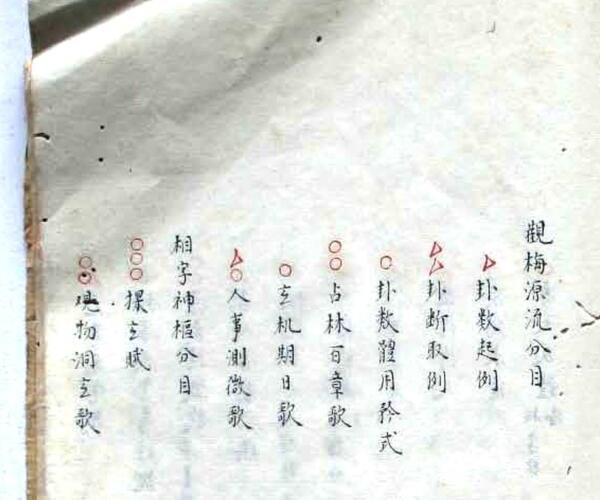 觀梅源流分目
卦数起例
卦断取例
卦数體用矜式
占林百章歌
玄机期日歌
人事測微歌
相字神樞分目
探玄賦
观物洞玄歌